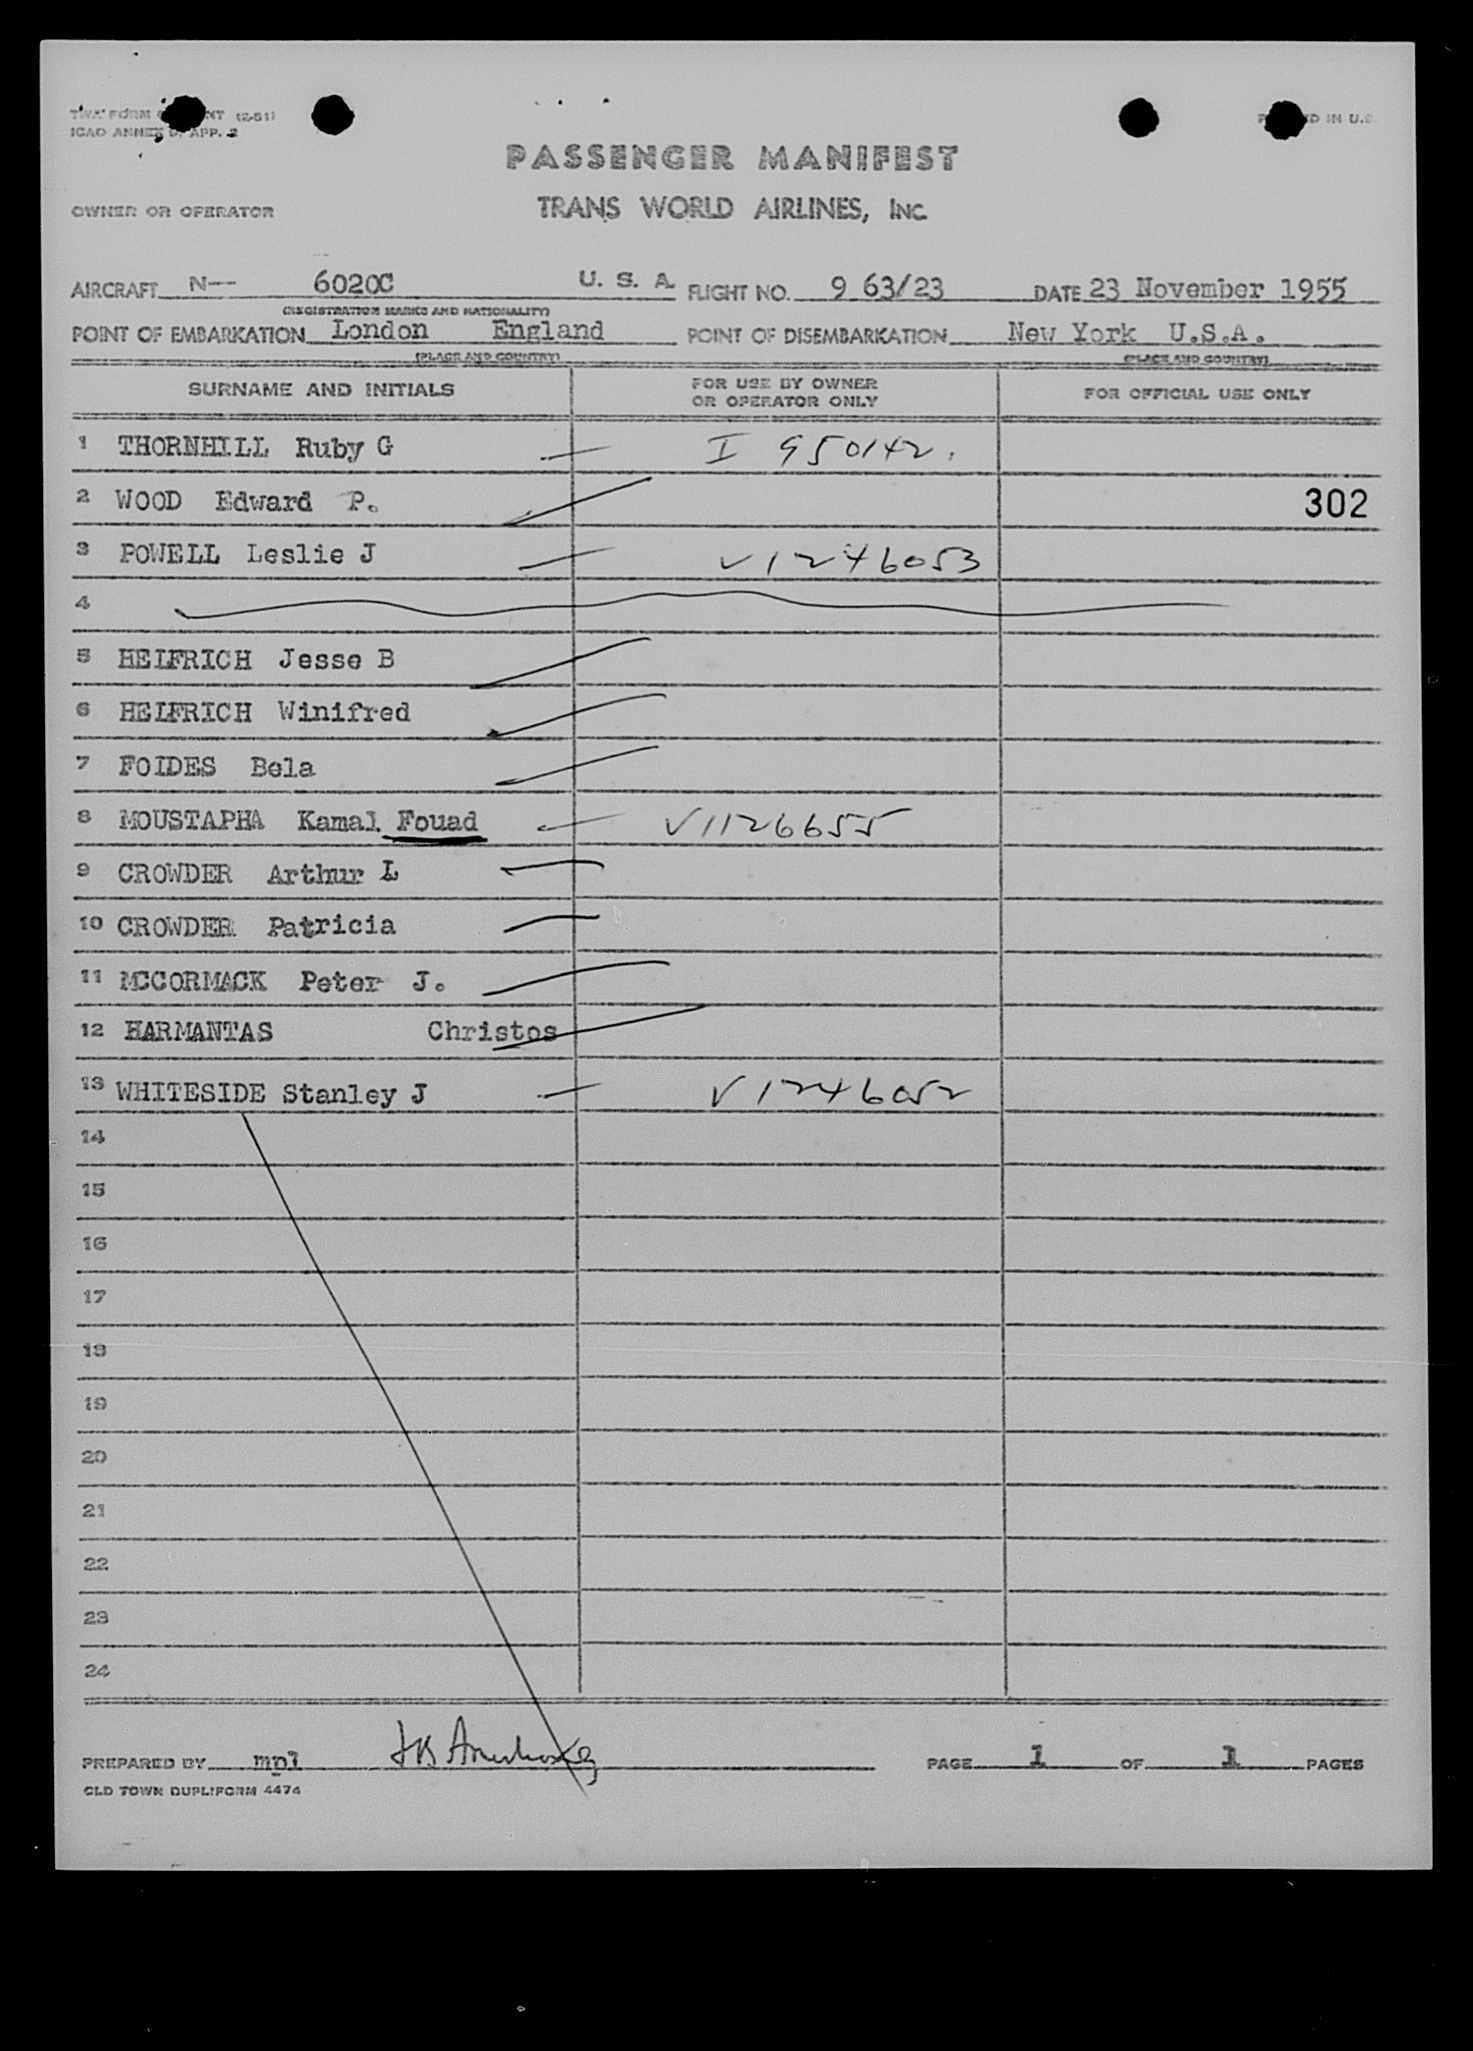 TWA FORM NT (2-51)
ICAO ANNEX 9, APP. 2
IN U.S.
PASSENGER MANIFEST
OWNER OR OPERATOR TRANS WORLD AIRLINES, INC
AIRCRAFT N-- 6020C U. S. A. FLIGHT NO. 9 63/23 DATE 23 November 1955
(REGISTRATION MARKS AND NATIONALITY)
POINT OF EMBARKATION London England POINT OF DISEMBARKATION New York U.S.A.
(PLACE AND COUNTRY) (PLACE AND COUNTRY)
SURNAME AND INITIALS FOR USE BY OWNER OR OPERATOR ONLY FOR OFFICIAL USE ONLY
1 THORNHILL Ruby G I 950142.
2 WOOD Edward P. 302
3 POWELL Leslie J V1246053
4
5 HELFRICH Jesse B
6 HELFRICH Winifred
7 FOIDES Bela
8 MOUSTAPHA Kamal Fouad V1126655
9 CROWDER Arthur L
10 CROWDER Patricia
11 MCCORMACK Peter J.
12 HARMANTAS Christos
13 WHITESIDE Stanley J V1246052
14
15
16
17
18
19
20
21
22
23
24
PREPARED BY mpl PAGE 1 OF 1 PAGES
OLD TOWN DUPLIFORM 4474